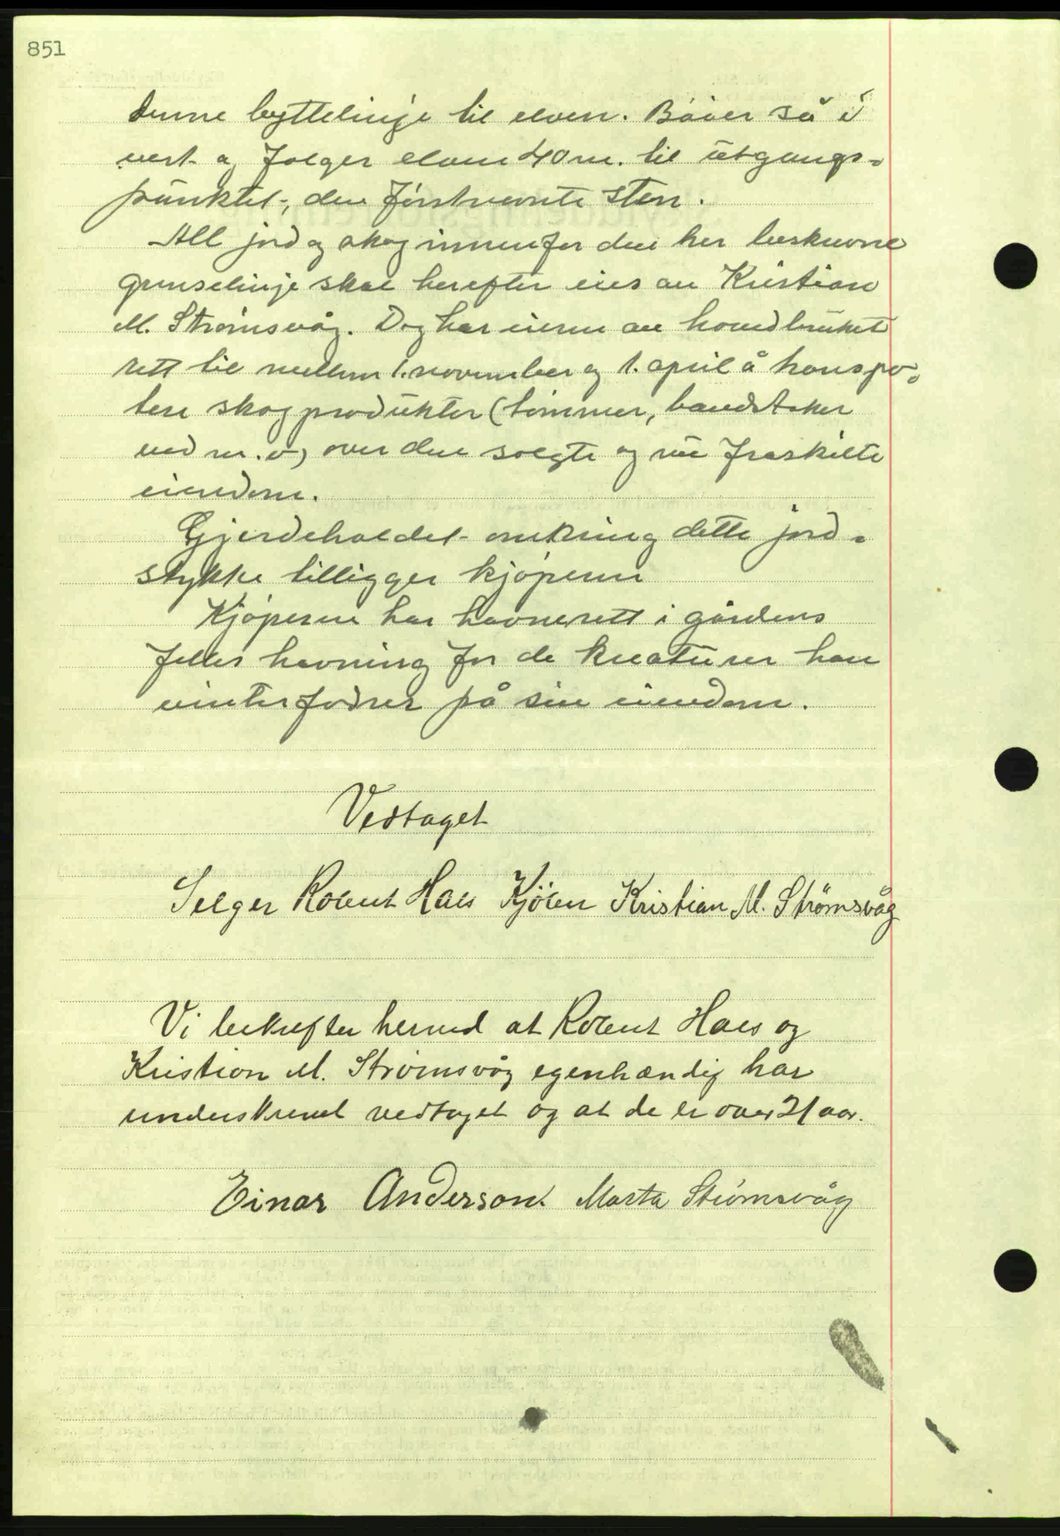 851
denne byttelinje til elven. Bøier så i
vest og følger elven 40 m. til utgangs-
punktet, den førstnevnte sten.
All jord og skog innenfor den her beskrevne
grenselinje skal herefter eies av Kristian
M. Strömsvåg. Dog har eieren av hovedbruket
rett til mellem 1. november og 1. april å transpor-
tere skogprodukter (tömmer, bandstaker
ved m.v) over den solgte og nu fraskilte
eiendom.
Gjerdeholdet omkring dette jord-
stykke tilligger kjøperen
Kjøperen har havnerett i gårdens
felles havning for de kreaturer han
vinterfodrer på sin eiendom.
Vedtaget
Selger Robert Haes Kjöber Kristian M. Strömsvåg
Vi bekrefter herved at Robert Haes og
Kristian M. Strömsvåg egenhændig har
underskrevet vedtaget og at de er over 21 aar.
Einar Anderson. Marta Strömsvåg